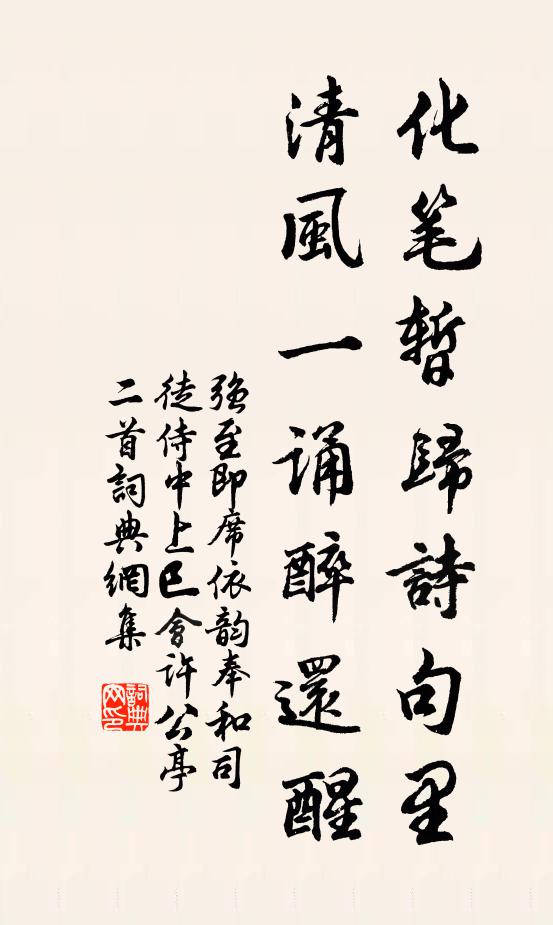 化笔暫歸詩句里
清風一誦醉還醒
強至即席依韵奉和司
徒侍中上巳會許公亭
二首詞典網集
詞典网印